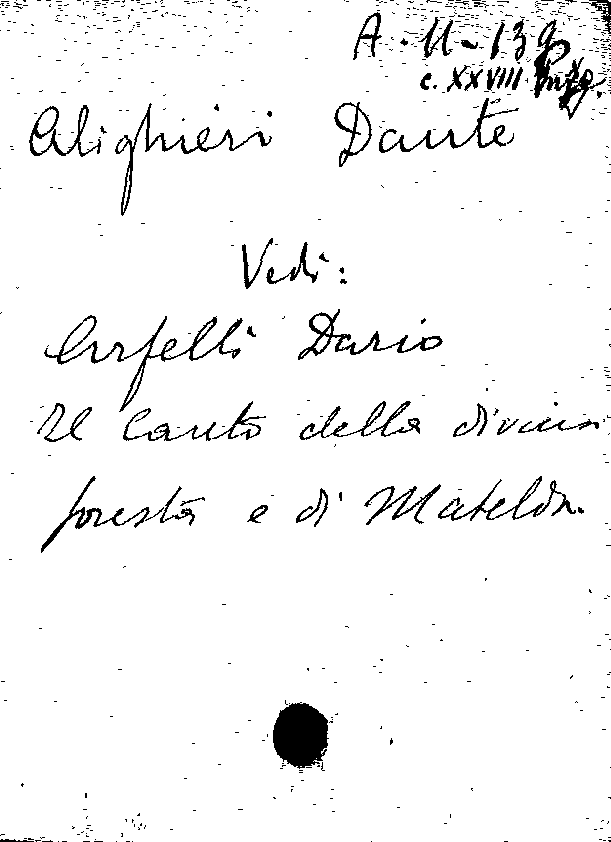 A. 11 - 13
c. XXVIII
Alighieri Dante
Vedi:
Dario
Il Canto della divina
foresta e di Matelda.